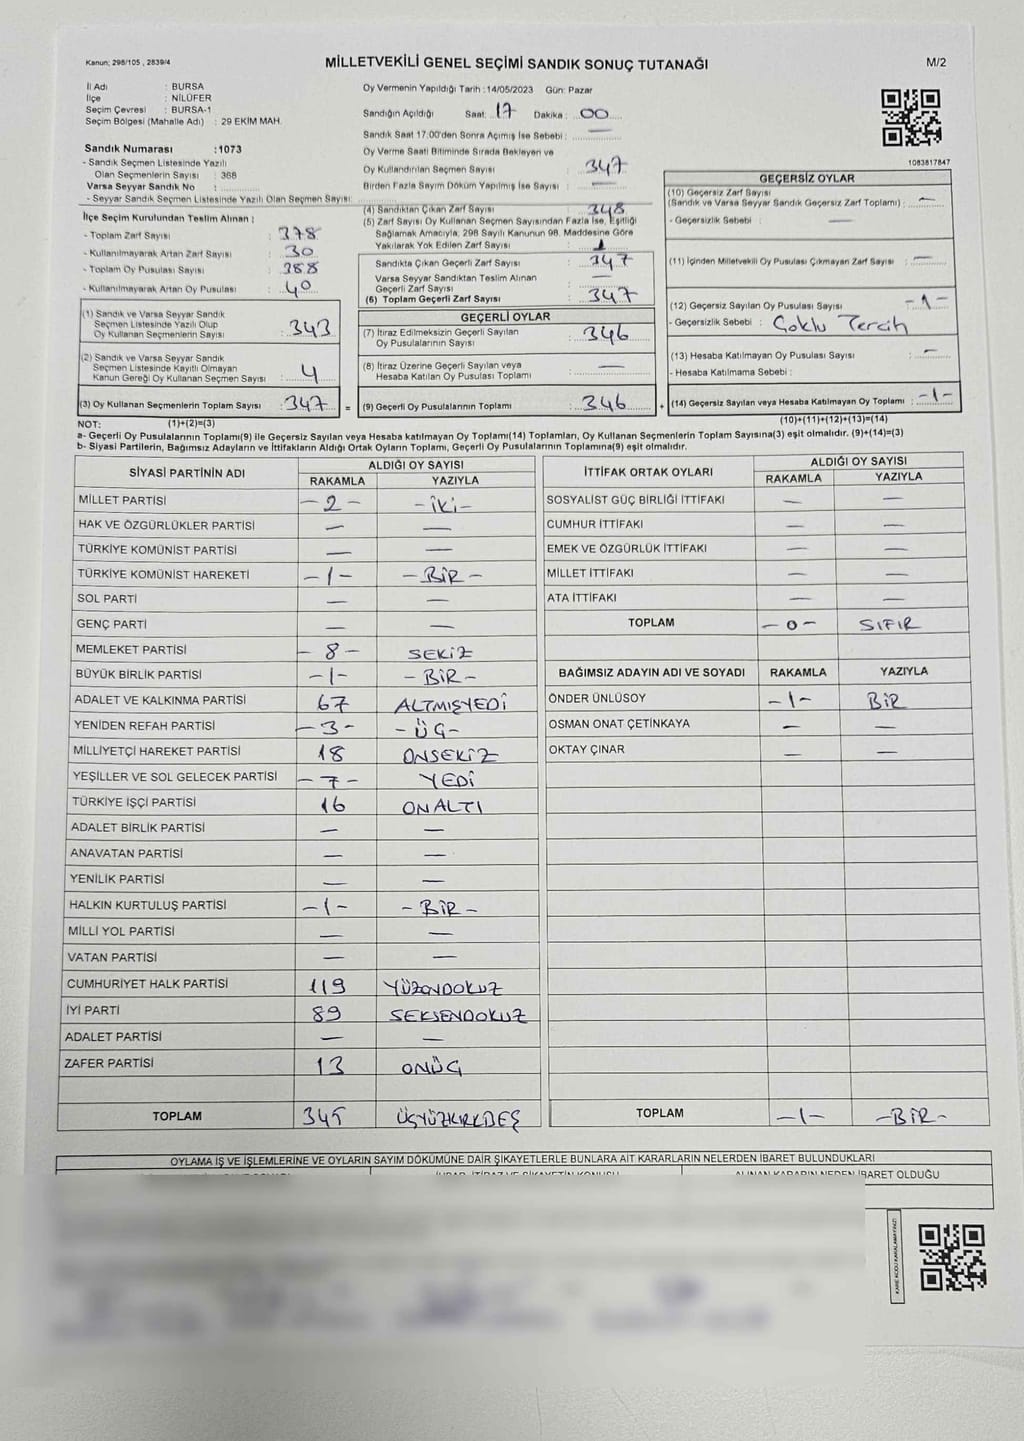 Kanun; 298/105 , 2839/4
MİLLETVEKİLİ GENEL SEÇİMİ SANDIK SONUÇ TUTANAĞI
M/2
İl Adı : BURSA
İlçe : NİLÜFER
Seçim Çevresi : BURSA-1
Seçim Bölgesi (Mahalle Adı) : 29 EKİM MAH.
Sandık Numarası :1073
- Sandık Seçmen Listesinde Yazılı
Olan Seçmenlerin Sayısı : 368
Varsa Seyyar Sandık No :
- Seyyar Sandık Seçmen Listesinde Yazılı Olan Seçmen Sayısı:
Oy Vermenin Yapıldığı Tarih :14/05/2023 Gün: Pazar
Sandığın Açıldığı Saat: 17 Dakika : 00
Sandık Saat 17:00'den Sonra Açımış İse Sebebi : —
Oy Verme Saati Bitiminde Sırada Bekleyen ve
Oy Kullandırılan Seçmen Sayısı : 347
Birden Fazla Sayım Döküm Yapılmış İse Sayısı : —
1083817847
İlçe Seçim Kurulundan Teslim Alınan ;
- Toplam Zarf Sayısı : 378
- Kullanılmayarak Artan Zarf Sayısı : 30
- Toplam Oy Pusulası Sayısı : 388
- Kullanılmayarak Artan Oy Pusulası : 40
(1) Sandık ve Varsa Seyyar Sandık
Seçmen Listesinde Yazılı Olup
Oy Kullanan Seçmenlerin Sayısı : 343
(2) Sandık ve Varsa Seyyar Sandık
Seçmen Listesinde Kayıtlı Olmayan
Kanun Gereği Oy Kullanan Seçmen Sayısı : 4
(3) Oy Kullanan Seçmenlerin Toplam Sayısı : 347 =
(4) Sandıktan Çıkan Zarf Sayısı : 348
(5) Zarf Sayısı Oy Kullanan Seçmen Sayısından Fazla İse, Eşitliği
Sağlamak Amacıyla, 298 Sayılı Kanunun 98. Maddesine Göre
Yakılarak Yok Edilen Zarf Sayısı : 1
Sandıkta Çıkan Geçerli Zarf Sayısı : 347
Varsa Seyyar Sandıktan Teslim Alınan
Geçerli Zarf Sayısı : —
(6) Toplam Geçerli Zarf Sayısı : 347
GEÇERLİ OYLAR
(7) İtiraz Edilmeksizin Geçerli Sayılan
Oy Pusulalarının Sayısı : 346
(8) İtiraz Üzerine Geçerli Sayılan veya
Hesaba Katılan Oy Pusulası Toplamı : —
(9) Geçerli Oy Pusulalarının Toplamı : 346 +
GEÇERSİZ OYLAR
(10) Geçersiz Zarf Sayısı
(Sandık ve Varsa Seyyar Sandık Geçersiz Zarf Toplamı) : —
- Geçersizlik Sebebi : —
(11) İçinden Milletvekili Oy Pusulası Çıkmayan Zarf Sayısı : —
(12) Geçersiz Sayılan Oy Pusulası Sayısı : -1-
- Geçersizlik Sebebi : Çoklu Tercih
(13) Hesaba Katılmayan Oy Pusulası Sayısı : —
- Hesaba Katılmama Sebebi :
(14) Geçersiz Sayılan veya Hesaba Katılmayan Oy Toplamı : -1-
NOT: (1)+(2)=(3) (10)+(11)+(12)+(13)=(14)
a- Geçerli Oy Pusulalarının Toplamı(9) ile Geçersiz Sayılan veya Hesaba katılmayan Oy Toplamı(14) Toplamları, Oy Kullanan Seçmenlerin Toplam Sayısına(3) eşit olmalıdır. (9)+(14)=(3)
b- Siyasi Partilerin, Bağımsız Adayların ve İttifakların Aldığı Ortak Oyların Toplamı, Geçerli Oy Pusulalarının Toplamına(9) eşit olmalıdır.
SİYASİ PARTİNİN ADI ALDIĞI OY SAYISI
RAKAMLA YAZIYLA
MİLLET PARTİSİ -2- -İKİ-
HAK VE ÖZGÜRLÜKLER PARTİSİ — —
TÜRKİYE KOMÜNİST PARTİSİ — —
TÜRKİYE KOMÜNİST HAREKETİ -1- -BİR-
SOL PARTİ — —
GENÇ PARTİ — —
MEMLEKET PARTİSİ -8- SEKİZ
BÜYÜK BİRLİK PARTİSİ -1- -BİR-
ADALET VE KALKINMA PARTİSİ 67 ALTMIŞYEDİ
YENİDEN REFAH PARTİSİ -3- -ÜÇ-
MİLLİYETÇİ HAREKET PARTİSİ 18 ONSEKİZ
YEŞİLLER VE SOL GELECEK PARTİSİ -7- YEDİ
TÜRKİYE İŞÇİ PARTİSİ 16 ONALTI
ADALET BİRLİK PARTİSİ — —
ANAVATAN PARTİSİ — —
YENİLİK PARTİSİ — —
HALKIN KURTULUŞ PARTİSİ -1- -BİR-
MİLLİ YOL PARTİSİ — —
VATAN PARTİSİ — —
CUMHURİYET HALK PARTİSİ 119 YÜZONDOKUZ
İYİ PARTİ 89 SEKSENDOKUZ
ADALET PARTİSİ — —
ZAFER PARTİSİ 13 ONÜÇ
TOPLAM 345 ÜÇYÜZKIRKBEŞ
İTTİFAK ORTAK OYLARI ALDIĞI OY SAYISI
RAKAMLA YAZIYLA
SOSYALİST GÜÇ BİRLİĞİ İTTİFAKI — —
CUMHUR İTTİFAKI — —
EMEK VE ÖZGÜRLÜK İTTİFAKI — —
MİLLET İTTİFAKI — —
ATA İTTİFAKI — —
TOPLAM -0- SIFIR
BAĞIMSIZ ADAYIN ADI VE SOYADI RAKAMLA YAZIYLA
ÖNDER ÜNLÜSOY -1- BİR
OSMAN ONAT ÇETİNKAYA — —
OKTAY ÇINAR — —
TOPLAM -1- -BİR-
OYLAMA İŞ VE İŞLEMLERİNE VE OYLARIN SAYIM DÖKÜMÜNE DAİR ŞİKAYETLERLE BUNLARA AİT KARARLARIN NELERDEN İBARET BULUNDUKLARI
ALINAN KARARIN NEDEN İBARET OLDUĞU